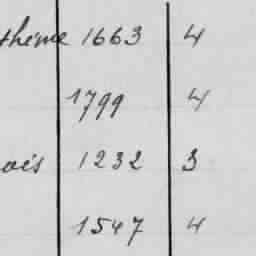 thème 1663 4
1799 4
ois 1232 3
1547 4